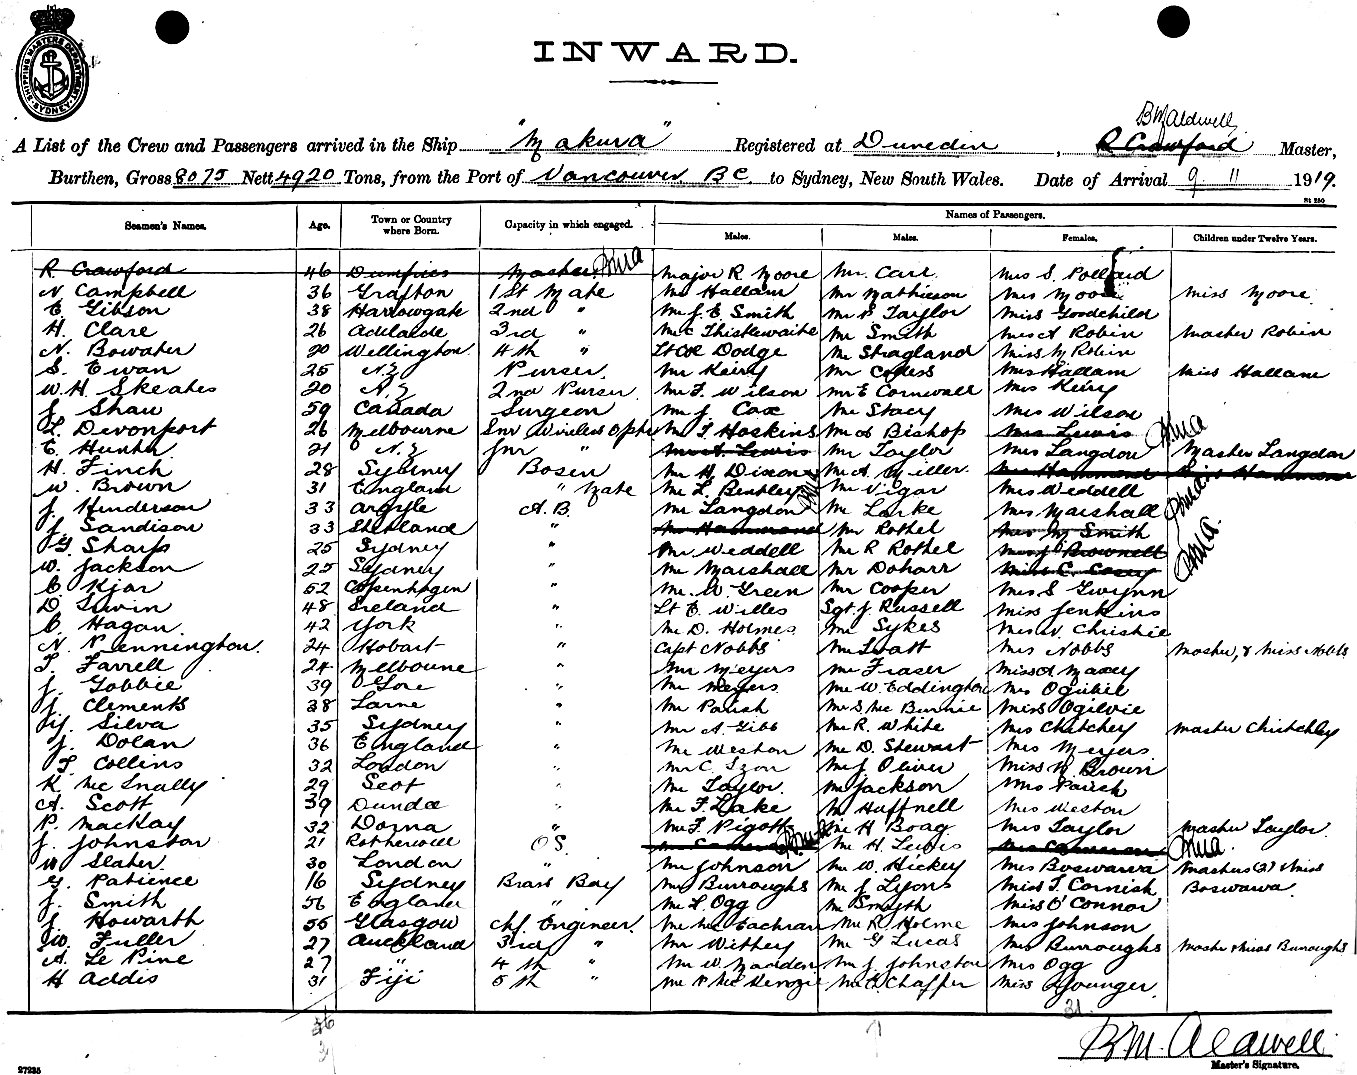 SHIPPING MASTERS DEPARTMENT SYDNEY
INWARD.
B M Aldwell
A List of the Crew and Passengers arrived in the Ship "Makura" Registered at Dunedin, R Crawford Master,
Burthen, Gross 8075 Nett 4920 Tons, from the Port of Vancouver BC to Sydney, New South Wales. Date of Arrival 9 11 1919.
St 250
Seamen's Names. Age. Town or Country where Born. Capacity in which engaged. Names of Passengers.
Males. Males. Females. Children under Twelve Years.
R Crawford 46 Dumfries Master BMA Major R Moore Mr Carr Mrs S. Pollard
N Campbell 36 Grafton 1st Mate Mr Hallam Mr Mathieson Mrs Moore Miss Moore
E Gibson 38 Harrowgate 2nd " Mr J. E. Smith Mr P Taylor Miss Goodchild
H. Clare 26 Adelaide 3rd " Mr C Thistlewaite Mr Smith Mrs A Robin Master Robin
N. Bowater 20 Wellington 4th " Lt Dodge Mr Stragland Miss M Robin
S. Ewan 25 N.Z Purser Mr Keiry Mr Mrs Hallam Miss Hallam
W. H. Skeates 20 N.Z 2nd Purser Mr F. Wilson Mr E Cornwall Mrs Keiry
J Shaw 59 Canada Surgeon Mr J. Cox Mr Stacy Mrs Wilson
L. Devonport 26 Melbourne Snr Wireless Mr T Hoskins Mr A Bishop Mrs Lewis BMA
E. Hunter 21 N.Z Jnr " Mr A. Lewis Mr Taylor Mrs Langdon Master Langdon
H. Finch 28 Sydney Bosun Mr H Dixon Mr A Miller Mrs Hammond Miss Hammond
W. Brown 31 England " Mate Mr L. Bentley Mr Vigar Mrs Weddell
J. Henderson 33 Argyle A.B. Mr Langdon Mr Larke Mrs Marshall
J Sandison 33 Shetland " Mr Hammond Mr Rothel Mrs M Smith
G. Sharp 25 Sydney " Mr Weddell Mr R Rothel Miss J Brownell BMA
W. Jackson 25 Sydney " Mr Marshall Mr Doharr Miss C. Casey
C Kjar 52 Copenhagen " Mr W Green Mr Cooper Miss S Gwynn
D Irwin 48 Ireland " Lt E. Willes Sgt J. Russell Miss Jenkins
C Hagan 42 York " Mr D. Holmes Mr Sykes Miss V. Christie
N Pennington 24 Hobart " Capt Nobbs Mr Mrs Nobbs Master, & Miss Nobbs
T. Farrell 24 Melbourne " Mr Meyers Mr Fraser Miss A Maxey
J. Gobbie 39 Gore " Mr Meyers Mr W. Eddington Mrs Ogilvie
J Clements 28 Larne " Mr Parish Mr S. McBurnie Miss Ogilvie
Silva 35 Sydney " Mr A. Gibb Mr R. White Mrs Chitchley Master Chitchley
J. Dolan 36 England " Mr Weston Mr D. Stewart Mrs Meyers
T Collins 32 London " Mr C. Izon Mr J Oliver Miss M Brown
K McInally 29 Scot " Mr Taylor Mr Jackson Mrs Parish
A. Scott 39 Dundee " Mr F. Lake Mr Huffnell Mrs Weston
P. Mackay 32 " Mr F. Pigott Mr H Boag Mrs Taylor Master Taylor
J. Johnston 21 Rotherwell O.S. Mr Cameron Mr H. Lewis Mrs Cameron BMA
W Slater 30 London " Mr Johnson Mr W. Hickey Mrs Boswarva Masters (2) & Miss
Patience 16 Sydney Brass Boy Mr Burroughs Mr J Lyons Miss T. Cornish Boswarva
J. Smith 56 England " Mr L. Ogg Mr Smyth Miss O'Connor
J Howarth 55 Glasgow Chf. Engineer Mr McEachran Mr R. Holme Mrs Johnson
W. Fuller 27 Auckland 3rd " Mr Withey Mr G Lucas Mrs Burroughs Master & Miss Burroughs
A. Le Pine 27 " 4th " Mr W. Madden Mr J. Johnston Mrs Ogg
H Addis 31 Fiji 5th " Mr P McKenzie Mr C Chaffer Miss Younger
31
36
B.M. Aldwell
Master's Signature.
27235